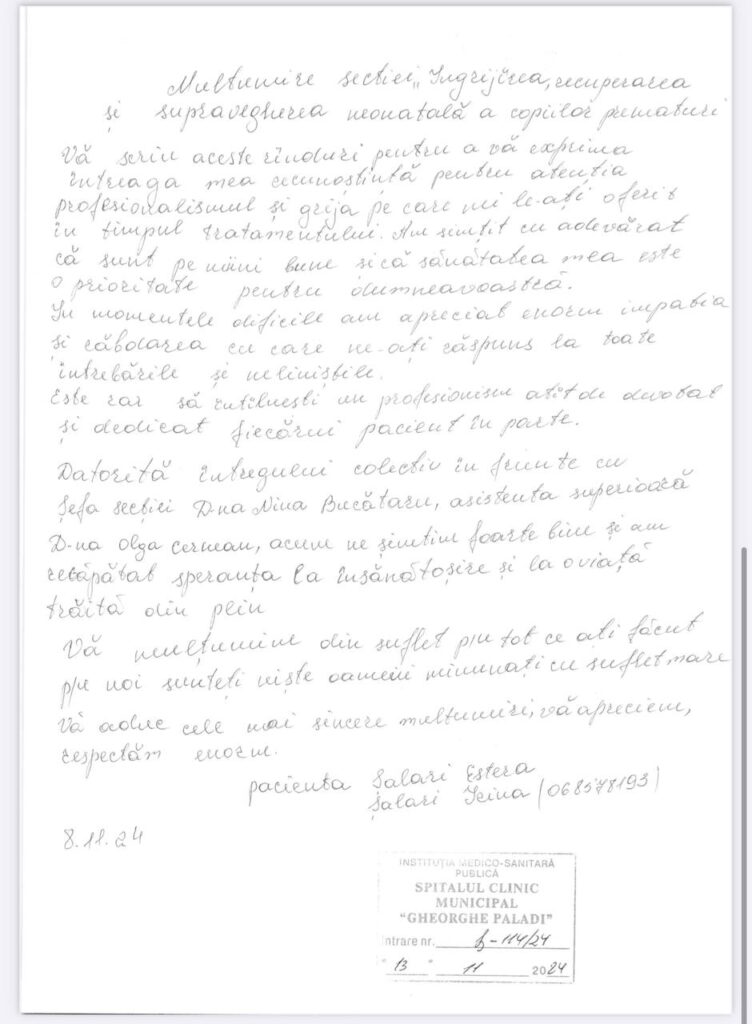 Multumire sectiei „Ingrijirea, recuperarea
și supravegherea neonatală a copiilor prematuri
Vă scriu aceste rînduri pentru a vă exprima
întreaga mea recunoștință pentru atenția
profesionalismul și grija pe care mi le-ați oferit
în timpul tratamentului. Am simțit cu adevărat
că sunt pe mîini bune și că sănătatea mea este
o prioritate pentru dumneavoastră.
In momentele dificile am apreciat enorm
și răbdarea cu care ne-ați răspuns la toate
întrebările și neliniștile.
Este rar să întîlnești un profesionism atît de devotat
și dedicat fiecărui pacient în parte.
Datorită întregului colectiv în frunte cu
Șefa secției D-na Nina Bucătaru, asistenta superioară
D-na Olga Cernean, acum ne simțim foarte bine și am
recăpătat speranța la însănătoșire și la o viață
trăită din plin
Vă mulțumim din suflet p/u tot ce ați făcut
p/u noi sunteți niște oameni minunați cu suflet mare
Vă aduc cele mai sincere multumiri, vă apreciem,
respectăm enorm.
pacienta Șalari Estera
Șalari Irina (068578193)
8.11.24
INSTITUȚIA MEDICO-SANITARĂ
PUBLICĂ
SPITALUL CLINIC
MUNICIPAL
"GHEORGHE PALADI"
Intrare nr. 114/24
" 13 " 11 2024